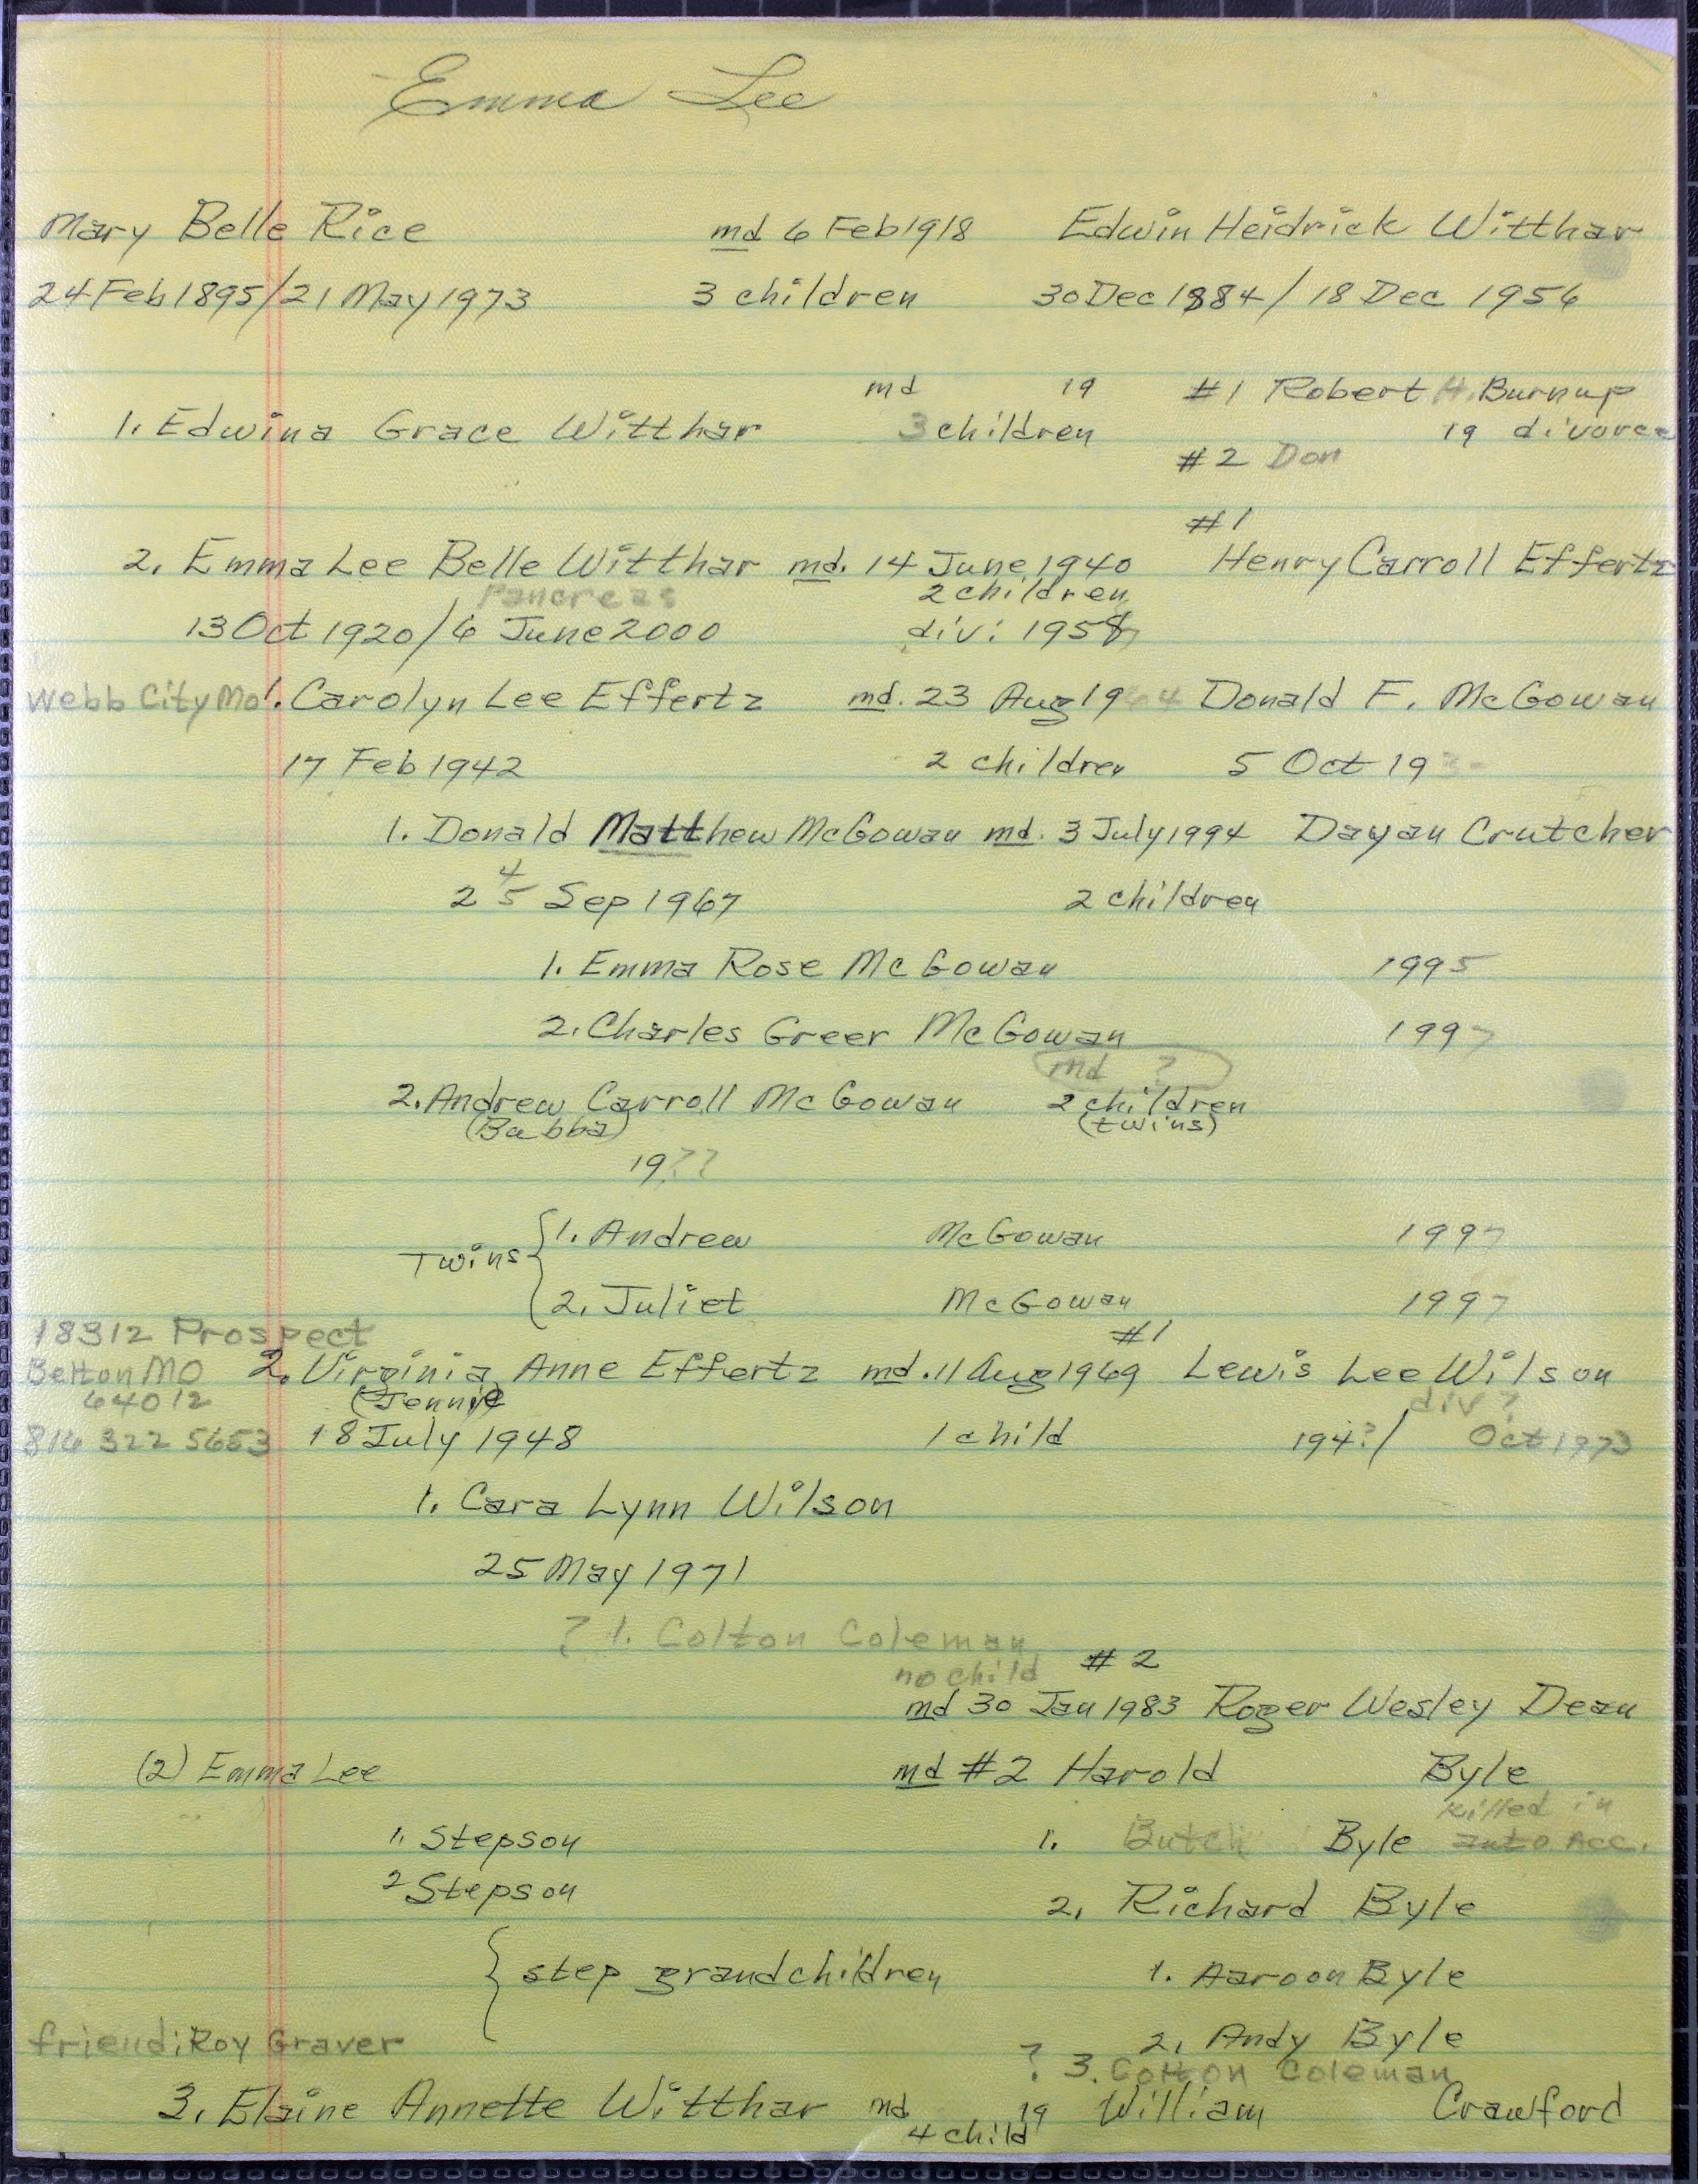 Emma Lee
Mary Belle Rice md 6 Feb 1918 Edwin Heidrick Witthar
24 Feb 1895/21 May 1973 3 children 30 Dec 1884/18 Dec 1956
md 19 #1 Robert H. Burnup
1. Edwina Grace Witthar 3 children 19 divorce
#2 Don
#1
2. Emma Lee Belle Witthar md. 14 June 1940 Henry Carroll Effertz
Pancreas 2 children
13 Oct 1920/6 June 2000 div: 1958
Webb City Mo 1. Carolyn Lee Effertz md. 23 Aug 1964 Donald F. McGowan
17 Feb 1942 2 children 5 Oct 19
1. Donald Matthew McGowan md. 3 July 1994 Dayan Crutcher
4
25 Sep 1967 2 children
1. Emma Rose McGowan 1995
2. Charles Greer McGowan 1997
md ?
2. Andrew Carroll McGowan 2 children
(Bubba) (twins)
19??
Twins 1. Andrew McGowan 1997
2. Juliet McGowan 1997
18312 Prospect #1
Belton MO 2. Virginia Anne Effertz md. 11 Aug 1969 Lewis Lee Wilson
64012 (Jennie) div?
816 322 5653 18 July 1948 1 child 194?/ Oct 1973
1. Cara Lynn Wilson
25 May 1971
? 1. Colton Coleman
no child #2
md 30 Jan 1983 Roger Wesley Dean
(2) Emma Lee md #2 Harold Byle
killed in
1. Stepson 1. Butch Byle auto Acc.
2 Stepson 2. Richard Byle
step grandchildren 1. Aaroon Byle
friend: Roy Graver 2. Andy Byle
? 3. Colton Coleman
3. Elaine Annette Witthar md 19 William Crawford
4 child